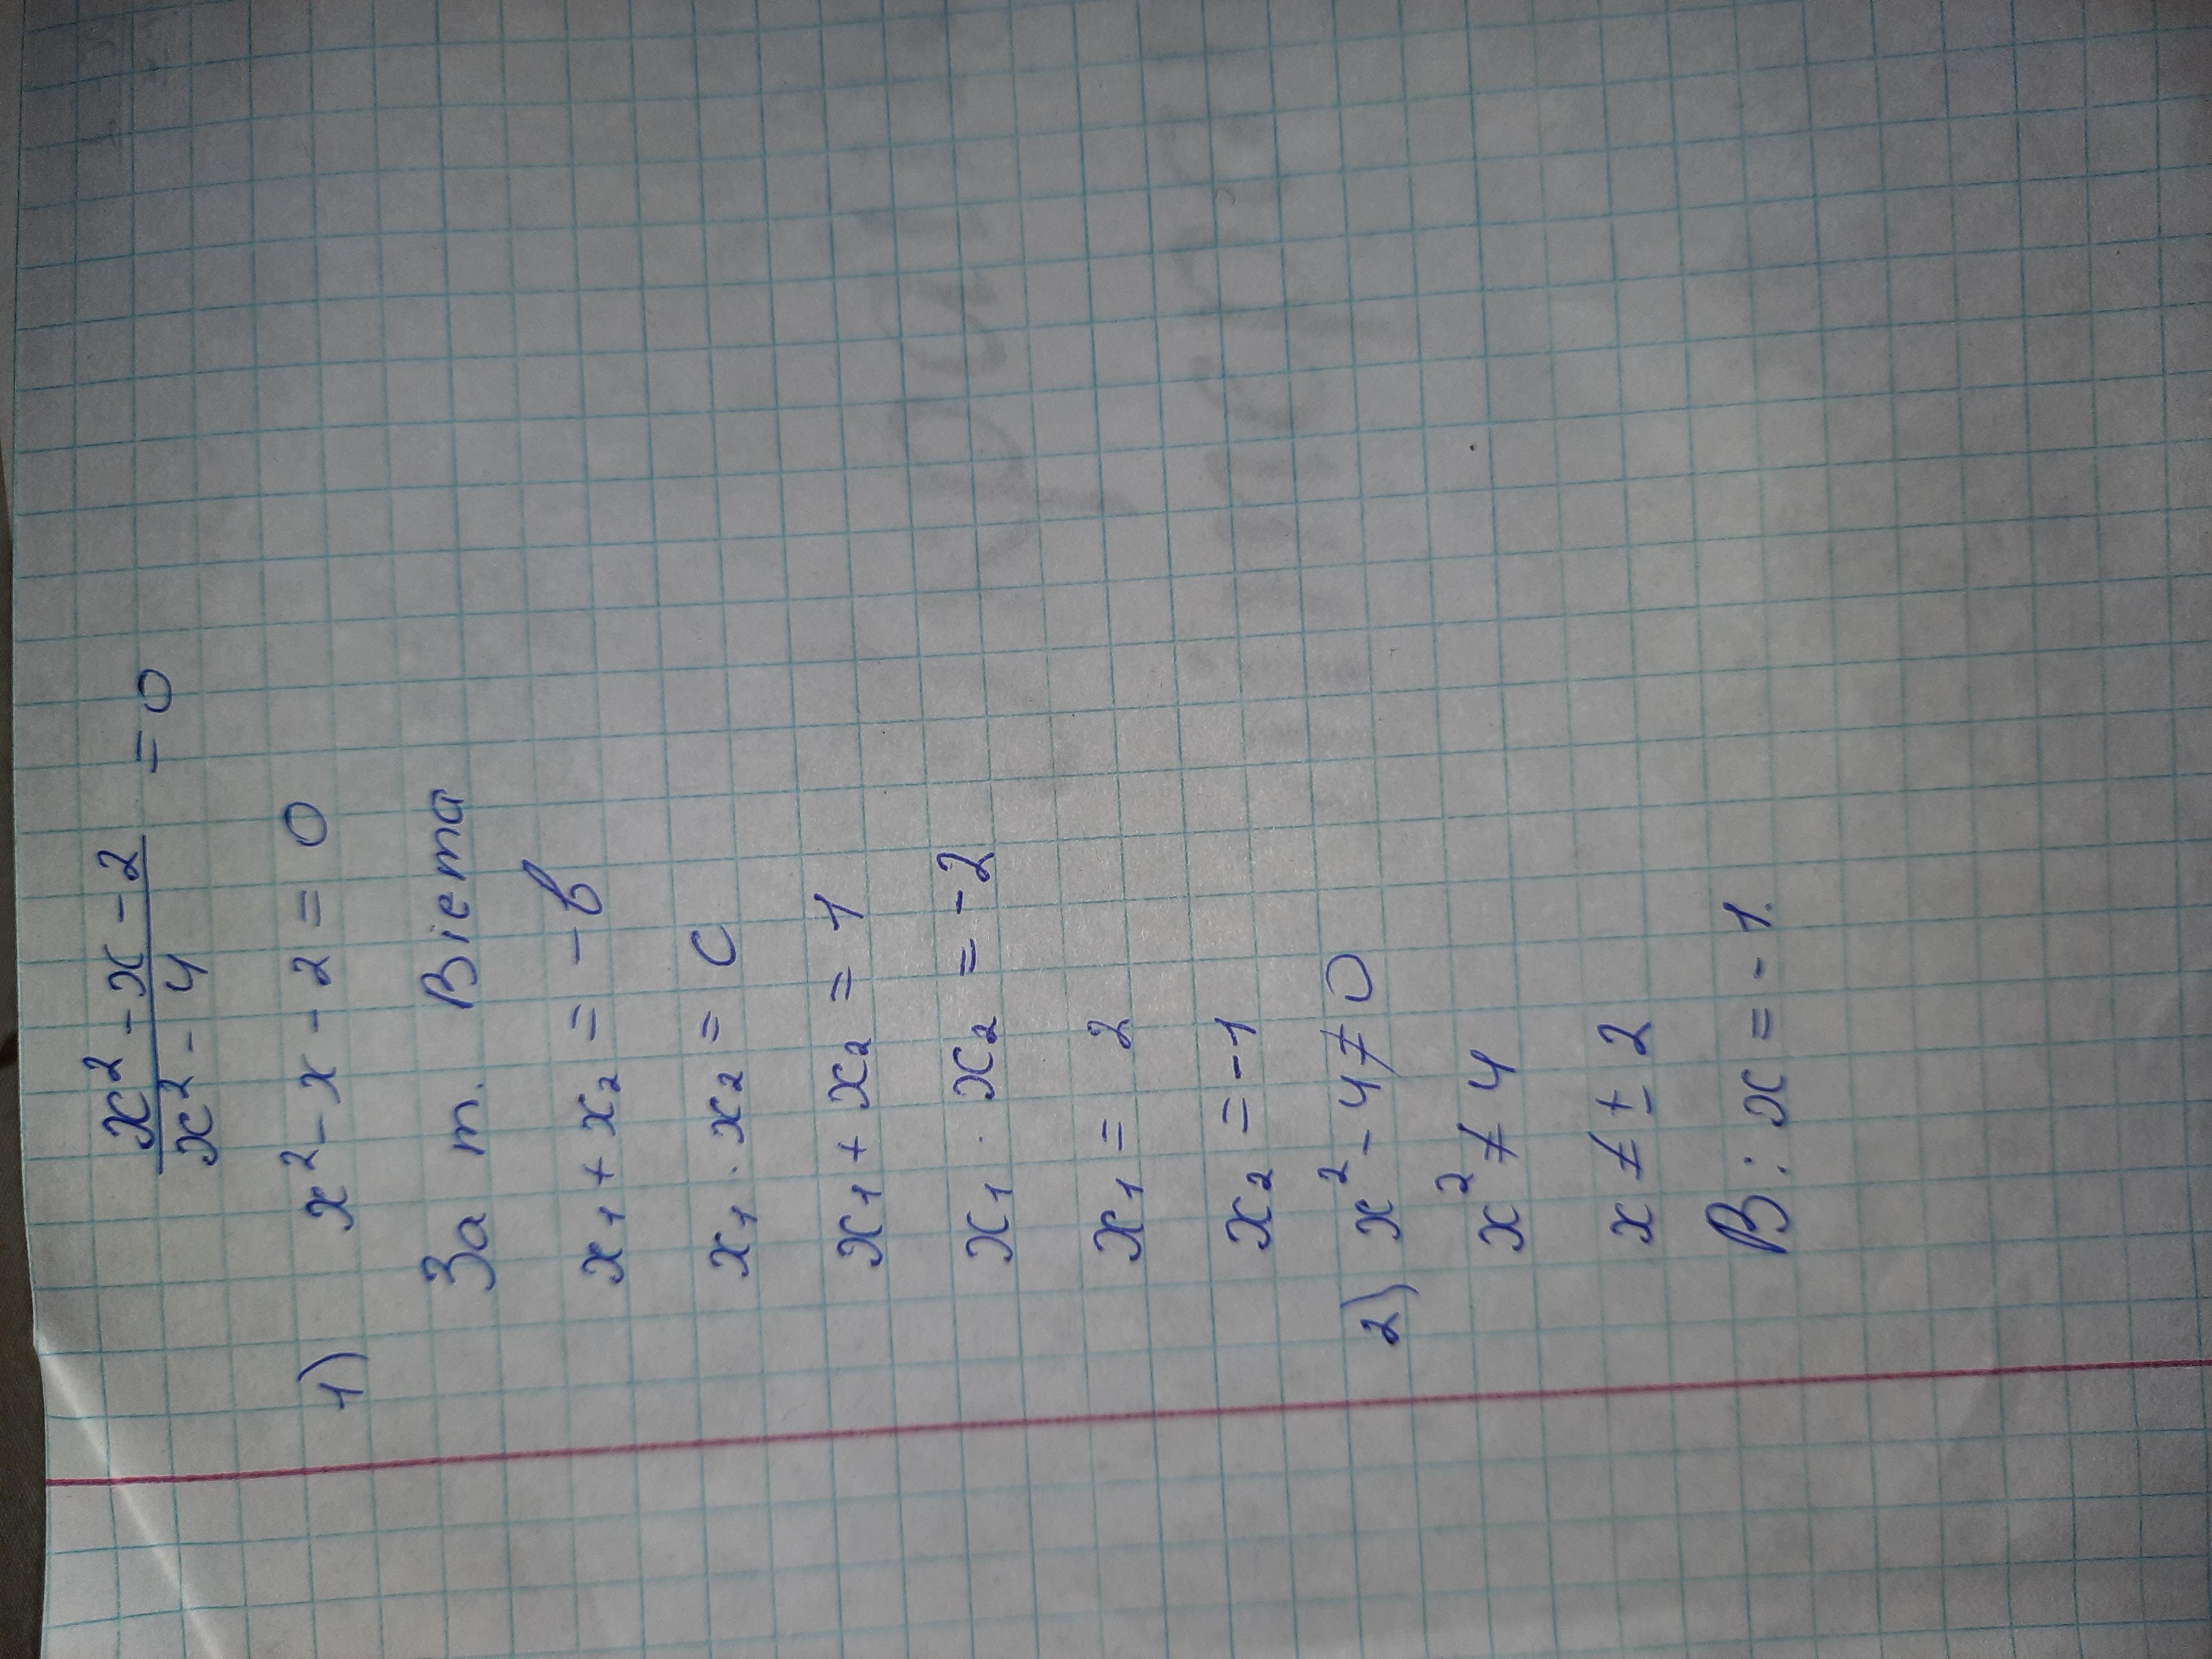 x² - x - 2 / x² - 4 = 0
1) x² - x - 2 = 0
За т. Вієта
x₁ + x₂ = -b
x₁ · x₂ = c
x₁ + x₂ = 1
x₁ · x₂ = -2
x₁ = 2
x₂ = -1
2) x² - 4 ≠ 0
x² ≠ 4
x ≠ ± 2
В: x = -1.